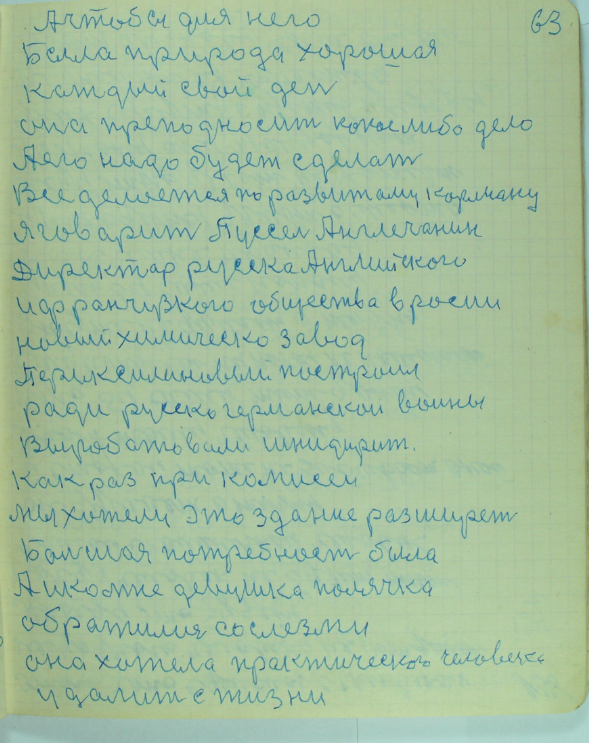 Ачтобы для него 63
Была природа хорошая
каждый свой ден
она преподносит коноелибо дело
Аего надо будет сделат
Все делоется по развитому корману
яговарит Пуссел Англечанин
Директар русска Английского
ифранчузкого общества вросии
новый химическо завод
Пераксилиновым построил
ради русско германской воины
Выробатовали шнидирит.
как раз при комисеи
мы хотели это здание разширет
Болшая потребност была
Аикомне девушка полячка
обратилис сослезми
она хотела практического человека
удалит с жизни